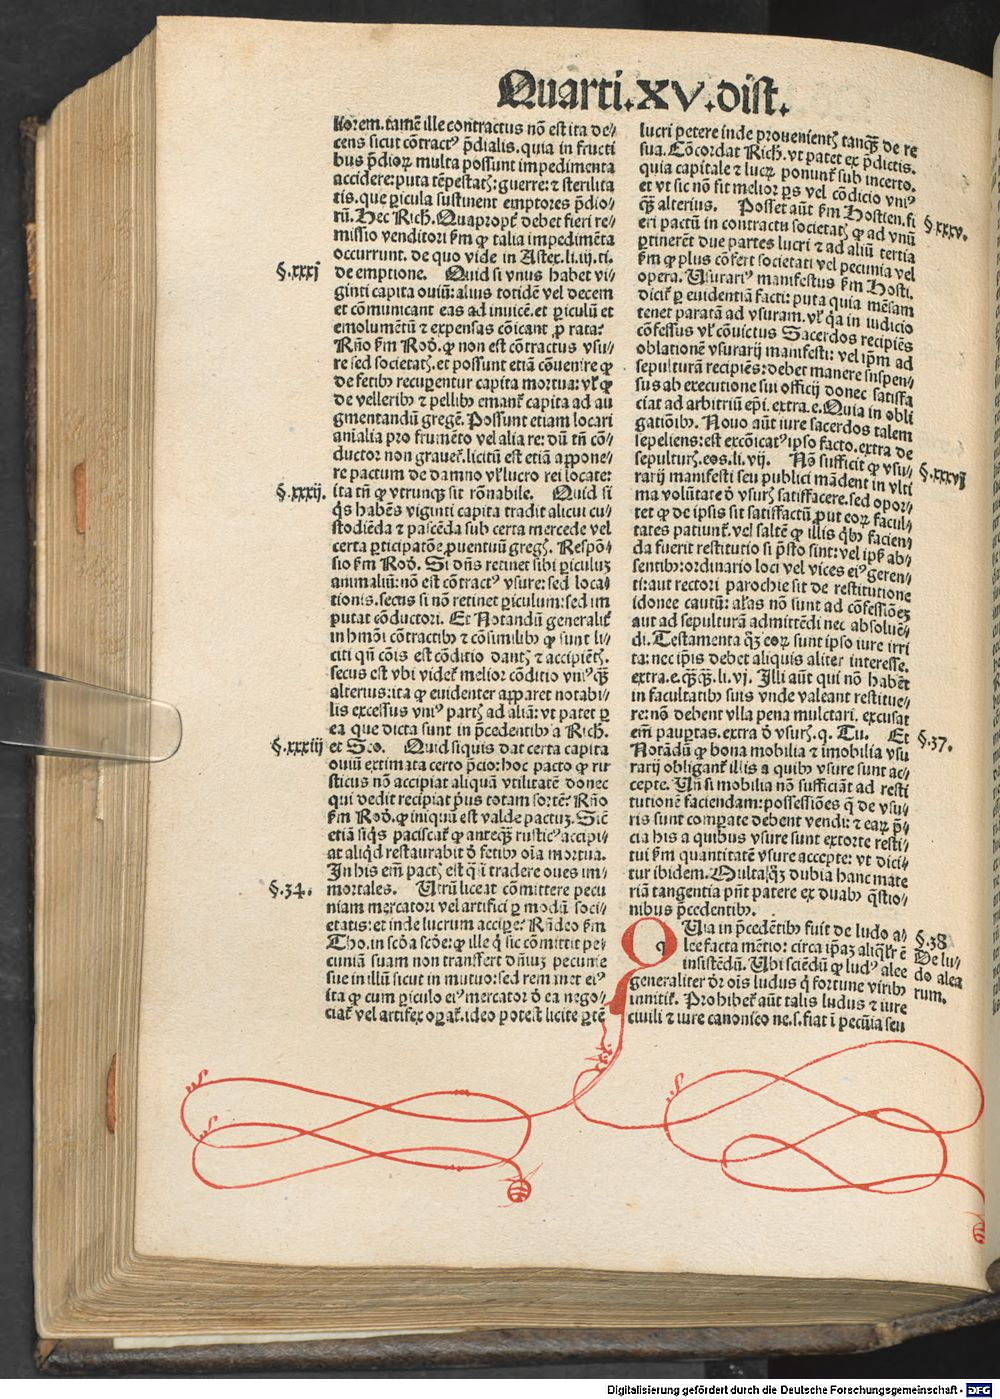 Quarti.XV.dist.
liorem.tamē ille contractus nō est ita de⸗
cens sicut cōtractꝰ p̄dialis.quia in fructi
bus p̄dioꝝ multa possunt impedimenta
accidere:puta tēpestatꝫ:guerre:⁊ sterilita
tis.que ꝑicula sustinent emptores p̄dio⸗
rū.Hec Rich.Quapropt̄ debet fieri re⸗
missio venditori ẜm ꝙ talia impedimēta
occurrunt.de quo vide in Astex.li.iij.ti.
§.xxxj
de emptione. Quid si vnus habet vi⸗
ginti capita ouiū:alius totidē vel decem
et cōmunicant eas ad inuicē.et ꝑiculū et
emolumētū ⁊ expensas cōicant ꝓ rata?
Rño ẜm Rod̄.ꝙ non est cōtractus vsu⸗
re sed societatꝫ.et possunt etiā cōuenire ꝙ
de fetibꝰ recuꝑentur capita mortua:vl̄ ꝙ
de velleribꝰ ⁊ pellibꝰ emant̄ capita ad au
gmentandū gregē.Possunt etiam locari
anialia pro frumēto vel alia re:dū tn̄ cō⸗
ductor non grauet̄.licitū est etiā appone⸗
re pactum de damno vl̄ lucro rei locate:
§.xxxij.
ita tn̄ ꝙ vtrunqꝫ sit rōnabile. Quid si
q̄s habēs viginti capita tradit alicui cu⸗
stodiēda ⁊ pascēda sub certa mercede vel
certa ꝑticipatōe ꝓuentuū gregꝫ. Respō⸗
sio ẜm Rod̄. Si dn̄s retinet sibi ꝑiculuꝫ
animaliū:nō est cōtractꝰ vsure:sed loca⸗
tionis.secus si nō retinet ꝑiculum:sed im
putat cōductori. Et Notandū generalit̄
in hmōi cōtractibꝰ ⁊ cōsimilibꝰ ꝙ sunt li⸗
citi qn̄ cōis est cōditio dantꝫ ⁊ accipiētꝫ.
secus est vbi videt̄ melior cōditio vniꝰqꝫ
alterius:ita ꝙ euidenter apparet notabi⸗
lis excessus vniꝰ partꝫ ad aliā:vt patet ꝑ
ea que dicta sunt in p̄cedentibꝰ a Rich.
§.xxxiij
et Sco. Quid si quis dat certa capita
ouiū extimata certo p̄cio:hoc pacto ꝙ ru
sticus nō accipiat aliquā vtilitatē donec
qui dedit recipiat pͥus totam sortē? Rño
ẜm Rod̄.ꝙ iniquū est valde pactuꝫ.Sic̄
etiā siq̄s paciscat̄ ꝙ anteqꝫ rusticꝰ accipi⸗
at aliqͥd restaurabit d̄ fetibꝰ oīa mortua.
In his em̄ pactꝫ est qͣi tradere oues im⸗
§.34.
mortales. Utrū liceat cōmittere pecu
niam mercatori vel artifici ꝑ modū soci⸗
etatis:et inde lucrum accipe? Rñdeo ẜm
Tho.in scd̄a scd̄e:ꝙ ille qͥ sic cōmittit pe⸗
cuniā suam non transfert dn̄iuꝫ pecunie
sue in illū sicut in mutuo:sed remanet eiꝰ
ita ꝙ cum ꝑiculo eiꝰ mercator d̄ ea nego⸗
ciat̄ vel artifex oꝑat̄.ideo potest licite ꝑtē
lucri petere inde prouenientꝫ tanqꝫ de re
sua.Cōcordat Rich.vt patet ex p̄dictis.
quia capitale ⁊ lucꝝ ponunt̄ sub incerto.
et vt sic nō fit melior ꝑs vel cōdicio vniꝰ
§.xxxv.
qꝫ alterius. Posset aūt ẜm Hostien.fi
eri pactū in contractu societatꝫ ꝙ ad vnū
ꝑtinerēt due partes lucri ⁊ ad aliū tertia
ẜm ꝙ plus cōfert societati vel pecunia vel
opera. Usurariꝰ manifestus ẜm Hosti.
dicit̄ ꝑ euidentiā facti:puta quia mēsam
tenet paratā ad vsuram.vl̄ qͥa in iudicio
cōfessus vl̄ cōuictus Sacerdos recipiēs
oblationē vsurarij manifesti:vel ip̄m ad
sepulturā recipiēs:debet manere suspen⸗
sus ab executione sui officij donec satisfa
ciat ad arbitriū epi.extra.e.Quia in obli
gatiōibꝰ. Nouo aūt iure sacerdos talem
sepeliens:est excōicatꝰ ipso facto.extra de
§.xxxvj
sepulturꝫ.eos.li.vij. Nō sufficit ꝙ vsu⸗
rarij manifesti seu publici mādent in vlti
ma volūtate d̄ vsurꝫ satisfacere.sed opor⸗
tet ꝙ de ipsis sit satisfactū ꝓut eoꝝ facul⸗
tates patiunt̄.vel saltē ꝙ illis qͥbꝰ facien⸗
da fuerit restitutio si p̄sto sint:vel ip̄s ab⸗
sentibꝰ:ordinario loci vel vices eiꝰ geren⸗
ti:aut rectori parochie sit de restitutione
idonee cautū: al̄as nō sunt ad cōfessiōeꝫ
aut ad sepulturā admittēdi nec absoluē⸗
di.Testamenta qꝫ eoꝝ sunt ipso iure irri
ta:nec ip̄is debet aliquis aliter interesse.
extra.e.qꝫqꝫ.li.vj. Illi aūt qui nō habēt
in facultatibꝰ suis vnde valeant restitue⸗
re:nō debent vlla pena mulctari. excusat
§.37.
em̄ pauꝑtas.extra d̄ vsurꝫ.q. Tu. Et
Notādū ꝙ bona mobilia ⁊ imobilia vsu
rarij obligant̄ illis a quibꝰ vsure sunt ac⸗
cepte. Un̄ si mobilia nō sufficiāt ad resti
tutionē faciendam:possessiōes q̄ de vsu⸗
ris sunt comꝑate debent vendi:⁊ eaꝝ p̄⸗
cia his a quibus vsure sunt extorte resti⸗
tui ẜm quantitatē vsure accepte: vt dici⸗
tur ibidem.Multa qꝫ dubia hanc mate
riā tangentia pn̄t patere ex duabꝰ q̄stio⸗
nibus p̄cedentibꝰ.
§.38
De lu⸗
do alea
rum.
Quia in p̄cedētibꝰ fuit de ludo a⸗
lee facta mētio: circa ip̄aꝫ aliql̄r ē
insistēdū. Ubi sciēdū ꝙ ludꝰ alee
generaliter dr̄ ois ludus qͥ fortune viribꝰ
innitit̄. Prohibet̄ aūt talis ludus ⁊ iure
ciuili ⁊ iure canonico ne.s.fiat ī pecūia seu
Digitalisierung gefördert durch die Deutsche Forschungsgemeinschaft - DFG